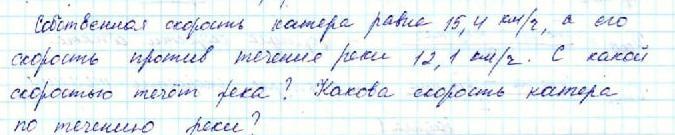 Собственная скорость катера равна 15,4 км/ч, а его
скорость против течения реки 12,1 км/ч. С какой
скоростью течёт река? Какова скорость катера
по течению реки?